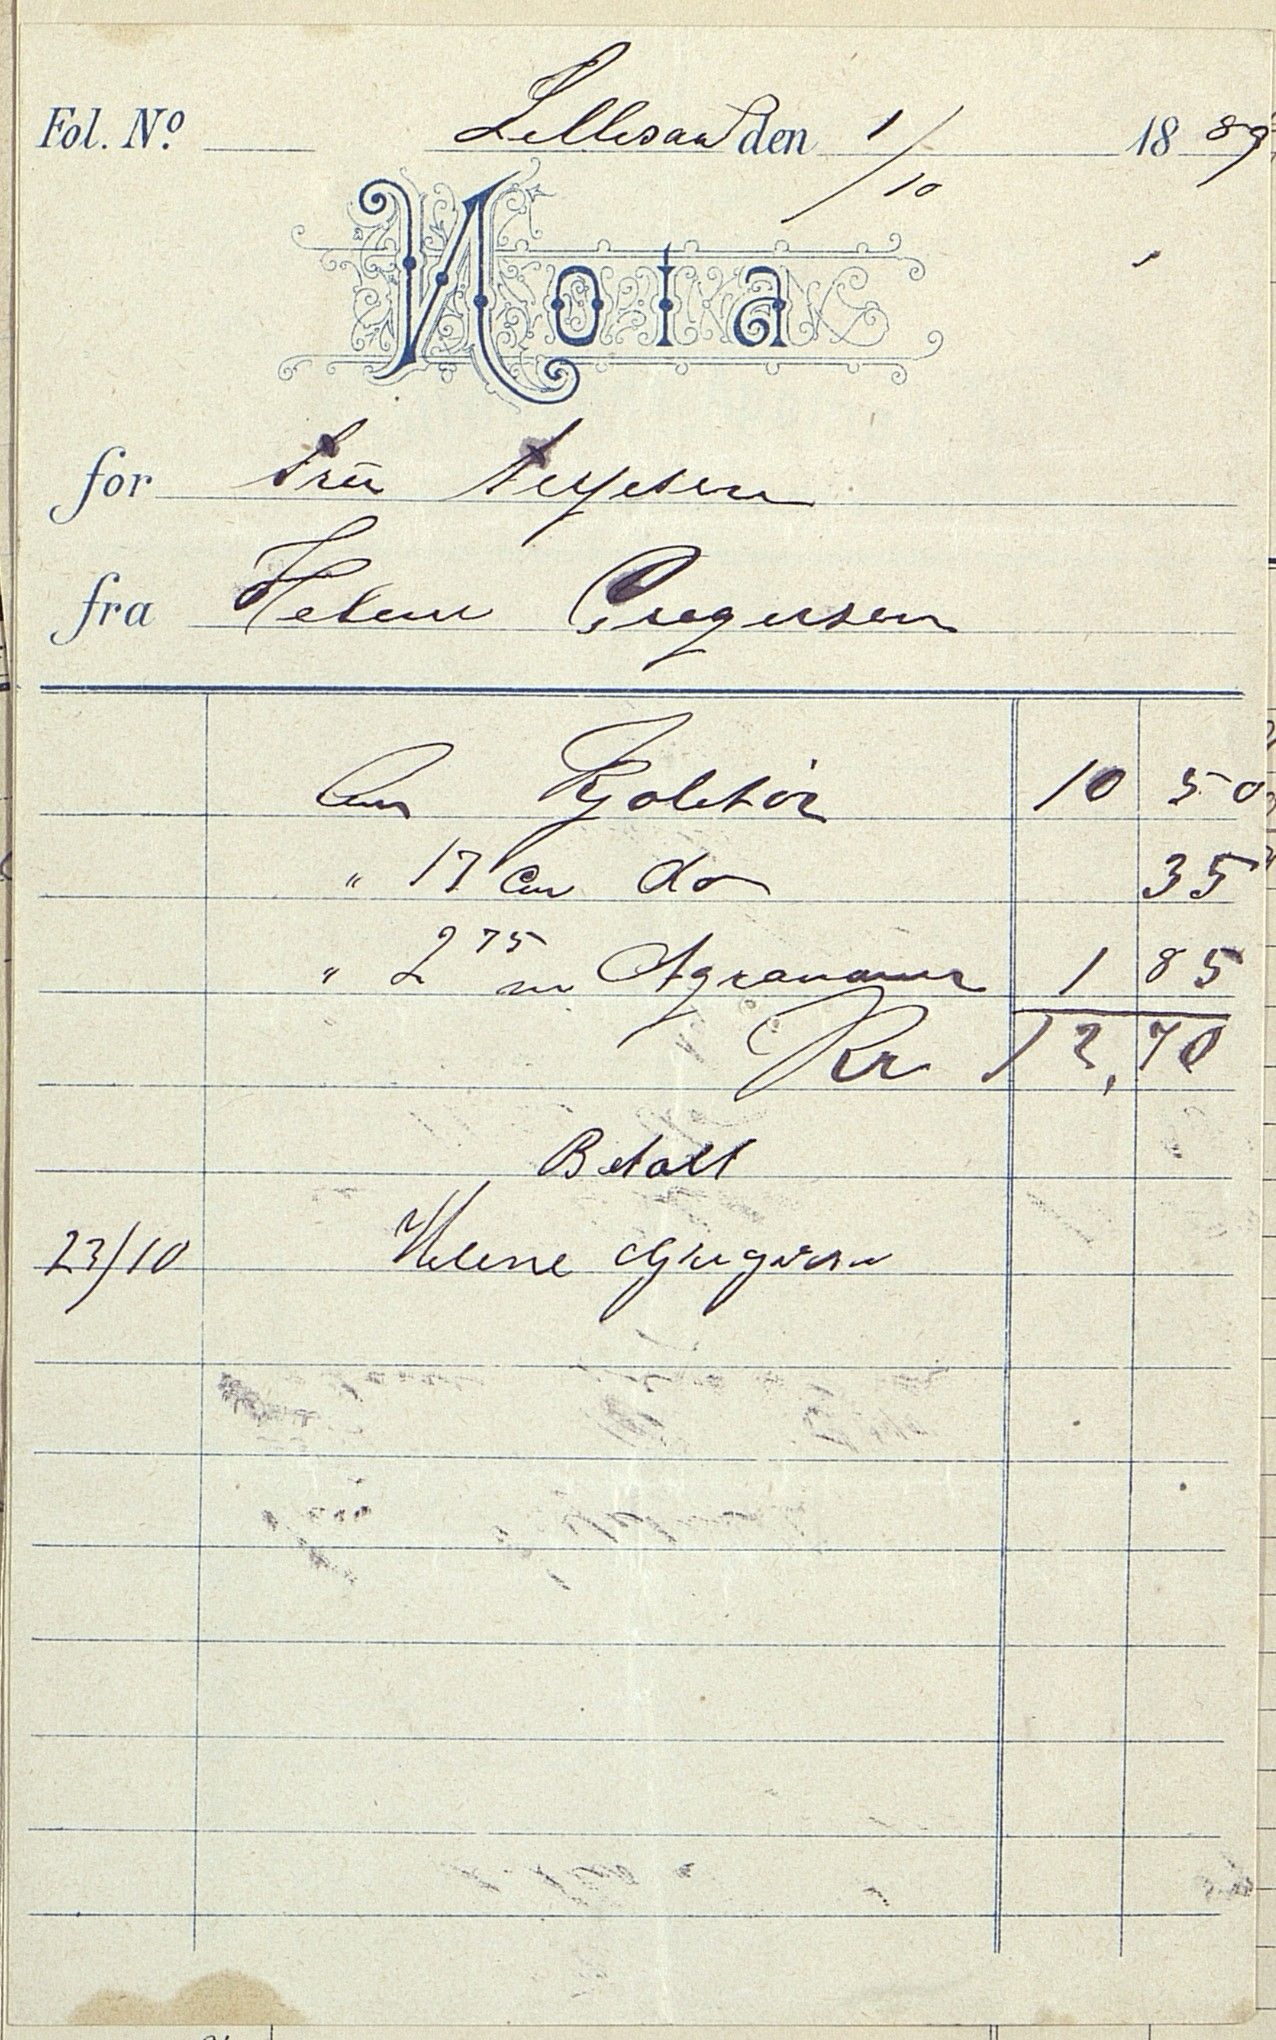 Fol. No. Lillesand den 1/10 1889
Nota
for Fru Terjesen
fra Helene Gregersen
En Kjoletöi 10 50
" 17 Cm do 35
" 2 75 m Agramaner 1 85
Kr 12,70
Betalt
23/10 Helene Gregersen